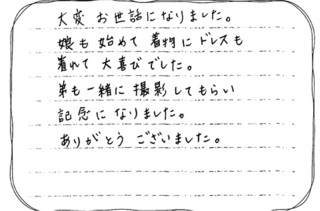 大変 お世話になりました。
娘も 始めて 着物に ドレスも
着れて 大喜びでした。
弟も一緒に 撮影してもらい
記念に なりました。
ありがとう ございました。